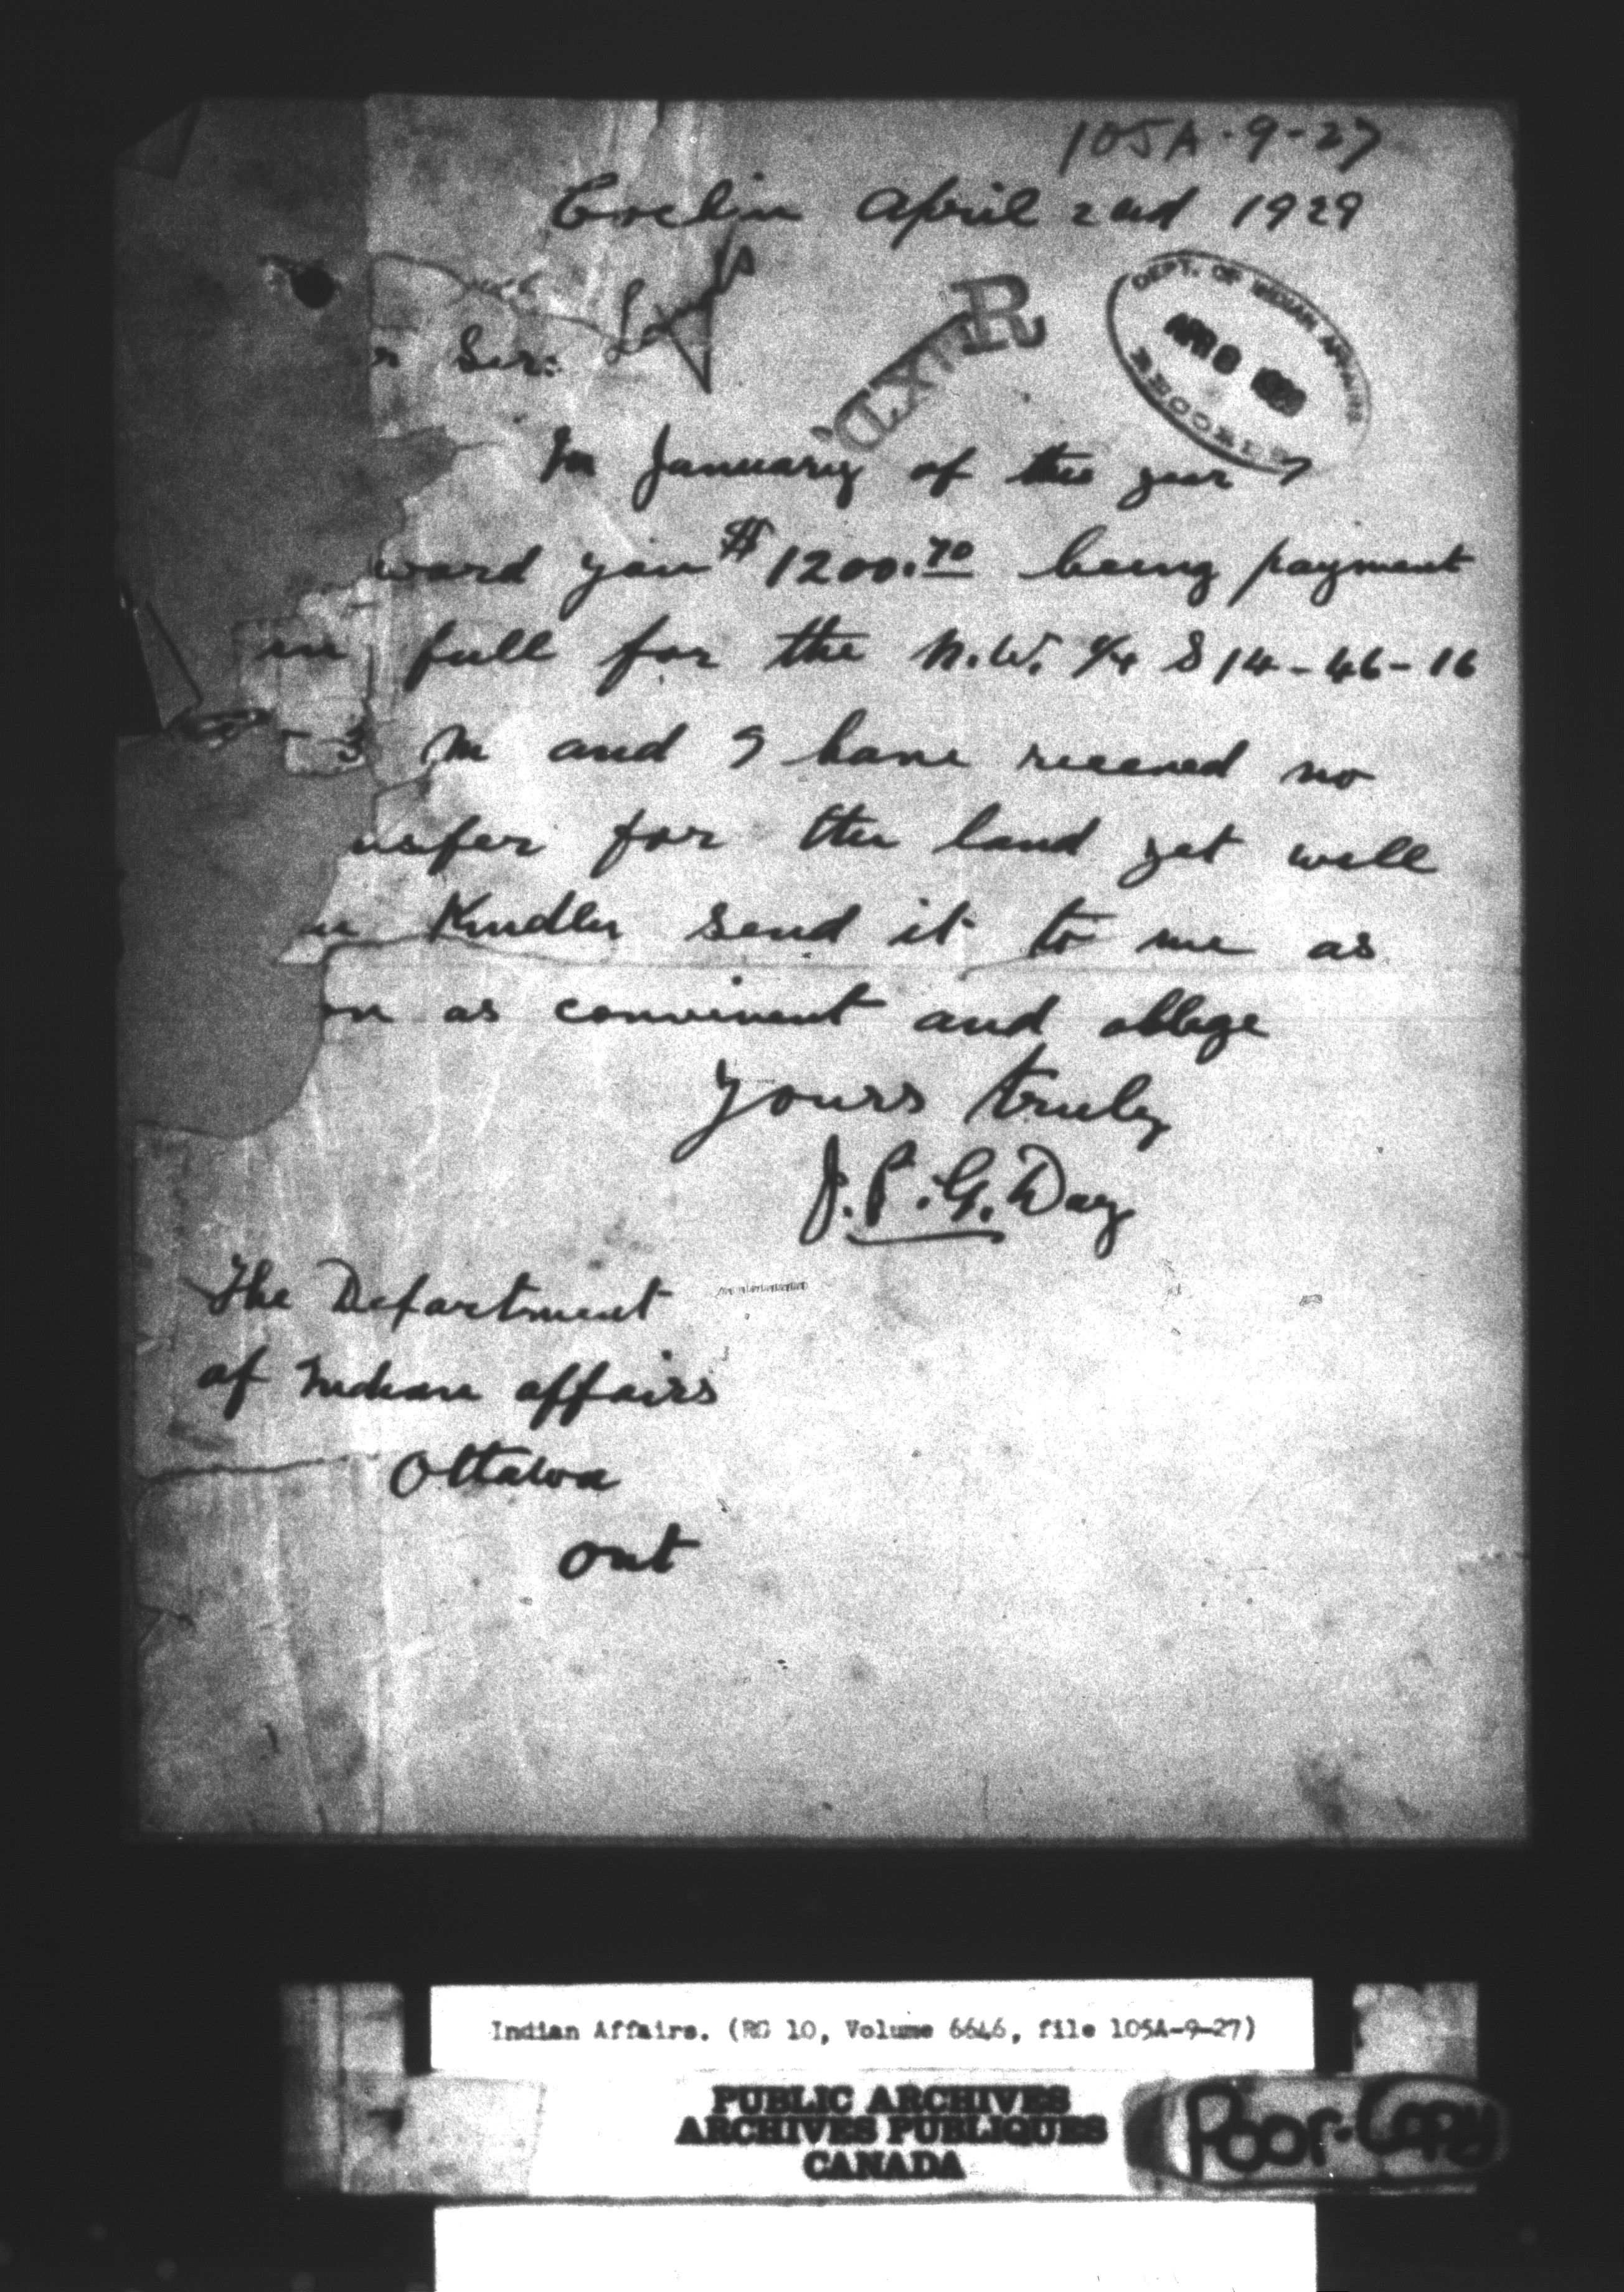 105A-9-27
Coclin April 2nd 1929
Lands
r Sir:
R
DEPT. OF INDIAN AFFAIRS
APR 8 1929
RECORDS
In January of this year I
ward you $1200.70 being payment
in full for the N.W. 1/4 S 14-46-16
- 3 M and I have receved no
nsfer for the land yet will
u Kindly send it to me as
on as convinent and oblige
Yours truly
J.P.G. Day
The Department
of Indian affairs
Ottawa
ont
Indian Affairs. (RG 10, Volume 6646, file 105A-9-27)
PUBLIC ARCHIVES
ARCHIVES PUBLIQUES
CANADA
Poor-Copy